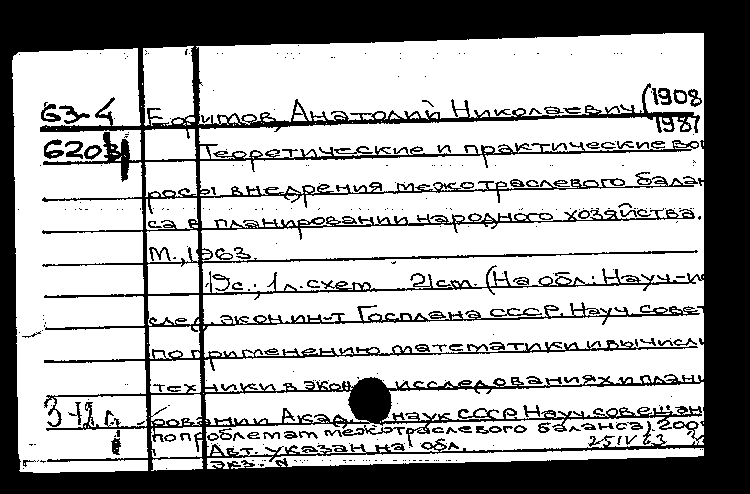 63-4 Ефимов, Анатолий Николаевич (1908
1987
620 Теоретические и практические воп
росы внедрения межотраслевого балан
са в планировании народного хозяйства.
М., 1963.
19с.; 1 л. схем. 21см. (На обл.: Науч.-ис
след. экон. ин-т Госплана СССР. Науч. совет
по применению математики и вычисли
техники в экон. исследованиях и плани
ровании Акад. наук СССР. Науч. совещан
по проблемам межотраслевого баланса) 200
Авт. указан на обл.
25 IV 63
экз. N